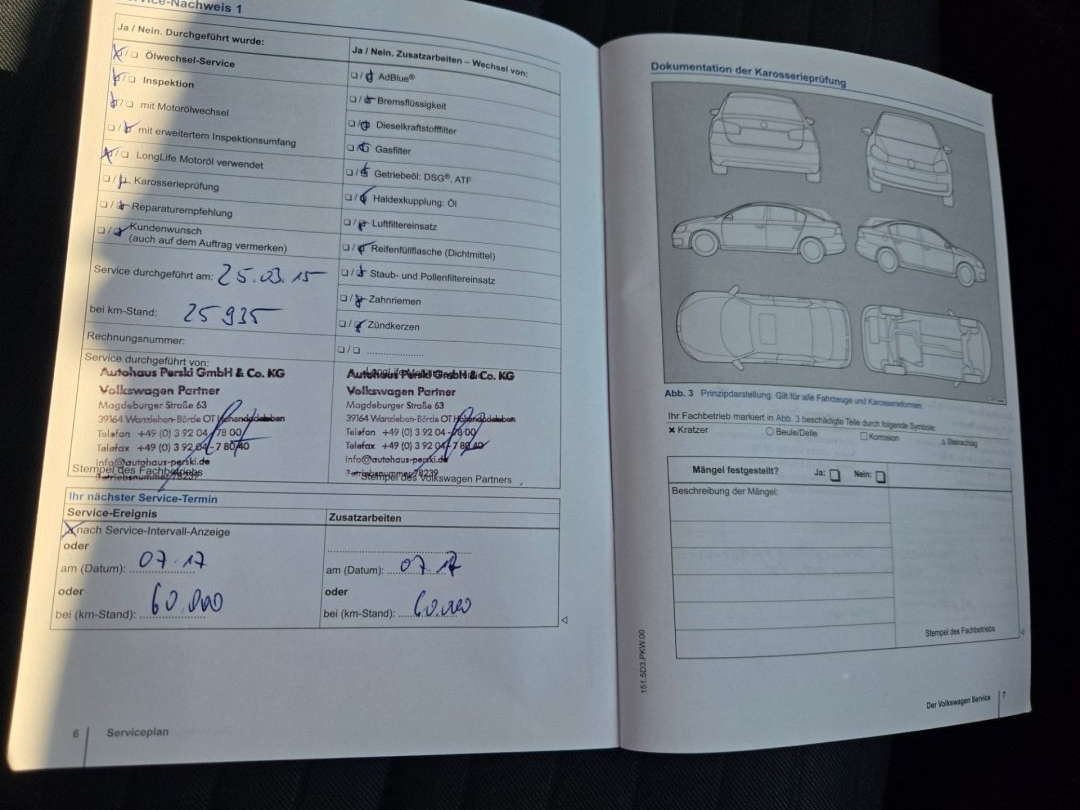 Service-Nachweis 1
Ja / Nein. Durchgeführt wurde:
☒/☐ Ölwechsel-Service
☒/☐ Inspektion
☒/☐ mit Motorölwechsel
☐/☒ mit erweitertem Inspektionsumfang
☒/☐ LongLife Motoröl verwendet
☐/☒ Karosserieprüfung
☐/☒ Reparaturempfehlung
☐/☒ Kundenwunsch
(auch auf dem Auftrag vermerken)
Service durchgeführt am: 25.03.15
bei km-Stand: 25 935
Rechnungsnummer:
Service durchgeführt von:
Autohaus Perski GmbH & Co. KG
Volkswagen Partner
Magdeburger Straße 63
39164 Wanzleben-Börde OT Hohendodeleben
Telefon +49 (0) 3 92 04 - 78 00
Telefax +49 (0) 3 92 04 - 7 80 40
info@autohaus-perski.de
Betriebsnummer 78239
Stempel des Fachbetriebs
Ja / Nein. Zusatzarbeiten – Wechsel von:
☐/☒ AdBlue®
☐/☒ Bremsflüssigkeit
☐/☒ Dieselkraftstofffilter
☐/☒ Gasfilter
☐/☒ Getriebeöl: DSG®, ATF
☐/☒ Haldexkupplung: Öl
☐/☒ Luftfiltereinsatz
☐/☒ Reifenfüllflasche (Dichtmittel)
☐/☒ Staub- und Pollenfiltereinsatz
☐/☒ Zahnriemen
☐/☒ Zündkerzen
☐/☐ ....................
Autohaus Perski GmbH & Co. KG
Volkswagen Partner
Magdeburger Straße 63
39164 Wanzleben-Börde OT Hohendodeleben
Telefon +49 (0) 3 92 04 - 78 00
Telefax +49 (0) 3 92 04 - 7 80 40
info@autohaus-perski.de
Betriebsnummer 78239
Stempel des Volkswagen Partners
Ihr nächster Service-Termin
Service-Ereignis
☒ nach Service-Intervall-Anzeige
oder
am (Datum): 07.17
oder
bei (km-Stand): 60.000
Zusatzarbeiten
am (Datum): 07.17
oder
bei (km-Stand): 60.000
6 Serviceplan
Dokumentation der Karosserieprüfung
Abb. 3 Prinzipdarstellung. Gilt für alle Fahrzeuge und Karosserieformen.
Ihr Fachbetrieb markiert in Abb. 3 beschädigte Teile durch folgende Symbole:
× Kratzer ○ Beule/Delle □ Korrosion △ Steinschlag
Mängel festgestellt? Ja: ☐ Nein: ☐
Beschreibung der Mängel:
Stempel des Fachbetriebs
151.5D3.PKW.00
Der Volkswagen Service 7